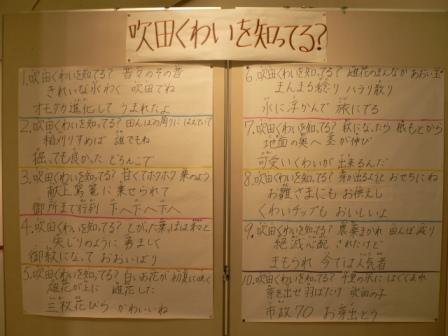 吹田くわいを知ってる?
1.吹田くわいを知ってる? 昔々のその昔
きれいな水わく 吹田でね
オモダカ進化して うまれたよ
2.吹田くわいを知ってる? 田んぼの周りに はんでいて
稲刈りすめば 誰でもね
掘っても良かった どろんこで
3.吹田くわいを知ってる? 甘くてホクホク 栗のよう
献上篭に 乗せられて
御所まで行列 下へ下へ下へ
4.吹田くわいを知ってる? とがった葉はほわきと
矢じりのように 勇ましく
御紋になって おおいばり
5.吹田くわいを知ってる? 白いお花が 初夏にさく
雄花が上に 雌花した
三枚花びら かわいいね
6.吹田くわいを知ってる? 雌花のまんなか あおい玉
まんまる稔り ハラリ散り
水に浮かんで 旅にでる
7.吹田くわいを知ってる? 秋になったら 根もとから
地面の奥へ 茎が伸び
可愛いくわいが 出来るんだ
8.吹田くわいを知ってる? 芽が出るようにと おせちにね
お雛さまにも お供えし
くわいチップも おいしいよ
9.吹田くわいを知ってる? 農薬まかれ 田んぼ減り
絶滅心配 されたけど
まもられ 今では人気者
10.吹田くわいを知ってる? 千里の水に はぐくまれ
芽を出せ 羽ばたけ 吹田の子
市政70 お芽出とう